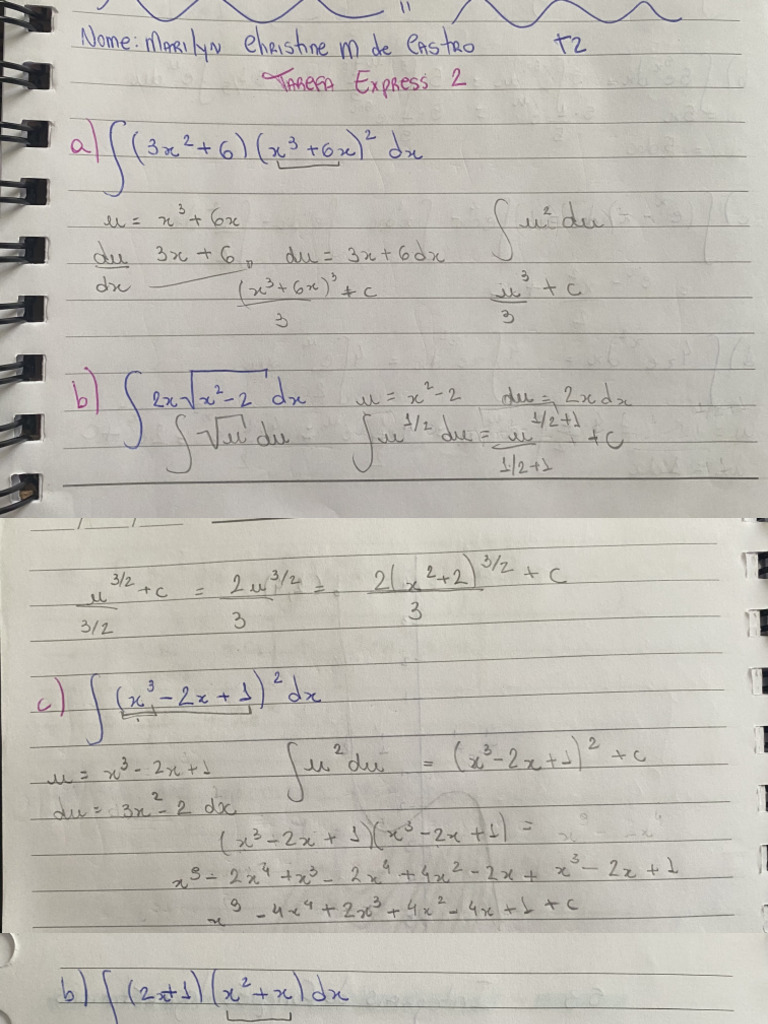 Nome: MARILYN Christine M de CASTRO T2
TAREFA Express 2
a) ∫(3x² + 6)(x³ + 6x)² dx
u = x³ + 6x ∫u² du
du/dx 3x + 6, du = 3x + 6 dx
(x³ + 6x)³/3 + c u³/3 + c
b) ∫2x√(x² - 2) dx u = x² - 2 du = 2x dx
∫√u du ∫u^(1/2) du = u^(1/2+1)/(1/2+1) + c
u^(3/2)/(3/2) + c = 2u^(3/2)/3 = 2(x² + 2)^(3/2)/3 + c
c) ∫(x³ - 2x + 1)² dx
u = x³ - 2x + 1 ∫u² du = (x³ - 2x + 1)² + c
du = 3x² - 2 dx
(x³ - 2x + 1)(x³ - 2x + 1) =
x⁹ - 2x⁴ + x³ - 2x⁴ + 4x² - 2x + x³ - 2x + 1
x⁹ - 4x⁴ + 2x³ + 4x² - 4x + 1 + c
b) ∫(2x+1)(x² + x) dx